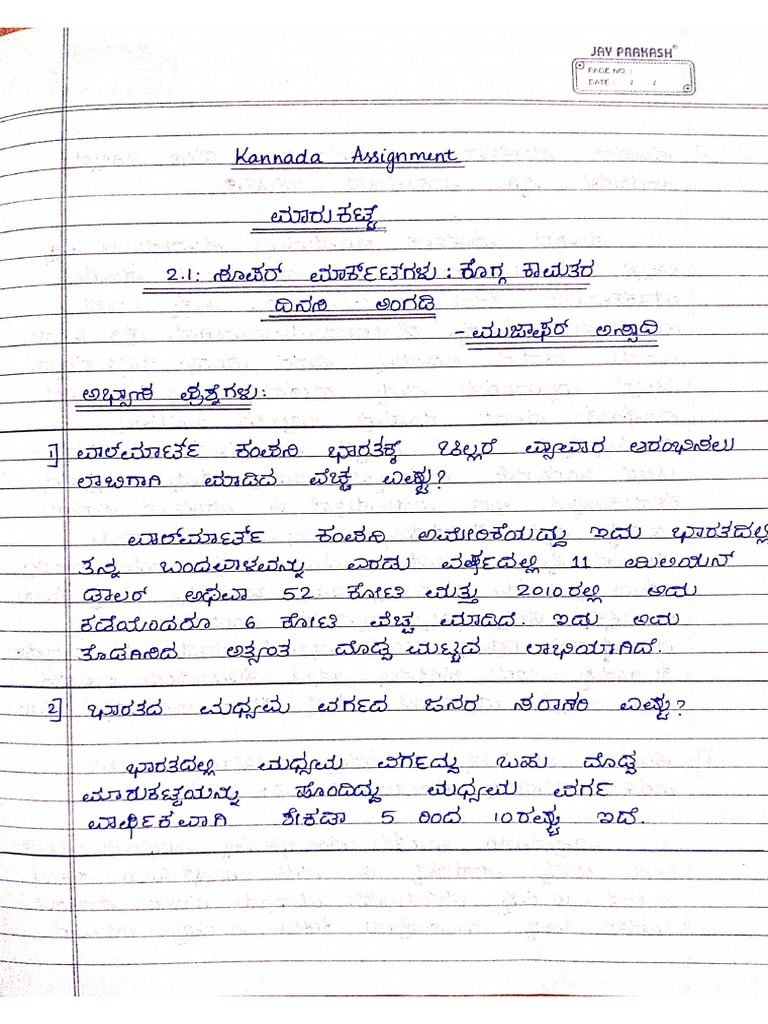 JAY PRAKASH®
PAGE NO :
DATE : / /
Kannada Assignment
ಮಾರುಕಟ್ಟೆ
2.1: ಸೂಪರ್ ಮಾರ್ಕೆಟ್‌ಗಳು : ಕೊಗ್ಗ ಕಾಮತರ
ದಿನಸಿ ಅಂಗಡಿ
- ಮುಜಾಫರ್ ಅಸ್ಸಾದಿ
ಅಭ್ಯಾಸ ಪ್ರಶ್ನೆಗಳು:
1] ವಾಲ್‌ಮಾರ್ಟ್ ಕಂಪನಿ ಭಾರತಕ್ಕೆ ಚಿಲ್ಲರೆ ವ್ಯಾಪಾರ ಆರಂಭಿಸಲು
ಲಾಬಿಗಾಗಿ ಮಾಡಿದ ವೆಚ್ಚ ಎಷ್ಟು?
ವಾಲ್‌ಮಾರ್ಟ್ ಕಂಪನಿ ಅಮೇರಿಕೆಯದ್ದು ಇದು ಭಾರತದಲ್ಲಿ
ತನ್ನ ಬಂಡವಾಳವನ್ನು ಎರಡು ವರ್ಷದಲ್ಲಿ 11 ಮಿಲಿಯನ್
ಡಾಲರ್ ಅಥವಾ 52 ಕೋಟಿ ಮತ್ತು 2010ರಲ್ಲಿ ಅದು
ಕಡೆಯಿಂದರೂ 6 ಕೋಟಿ ವೆಚ್ಚ ಮಾಡಿದೆ. ಇದು ಅದು
ತೊಡಗಿಸಿದ ಅತ್ಯಂತ ದೊಡ್ಡ ಮಟ್ಟದ ಲಾಭಿಯಾಗಿದೆ.
2] ಭಾರತದ ಮಧ್ಯಮ ವರ್ಗದ ಜನರ ಸರಾಸರಿ ಎಷ್ಟು?
ಭಾರತದಲ್ಲಿ ಮಧ್ಯಮ ವರ್ಗದ್ದು ಬಹು ದೊಡ್ಡ
ಮಾರುಕಟ್ಟೆಯನ್ನು ಹೊಂದಿದ್ದು ಮಧ್ಯಮ ವರ್ಗ
ವಾರ್ಷಿಕವಾಗಿ ಶೇಕಡಾ 5 ರಿಂದ 10ರಷ್ಟು ಇದೆ.